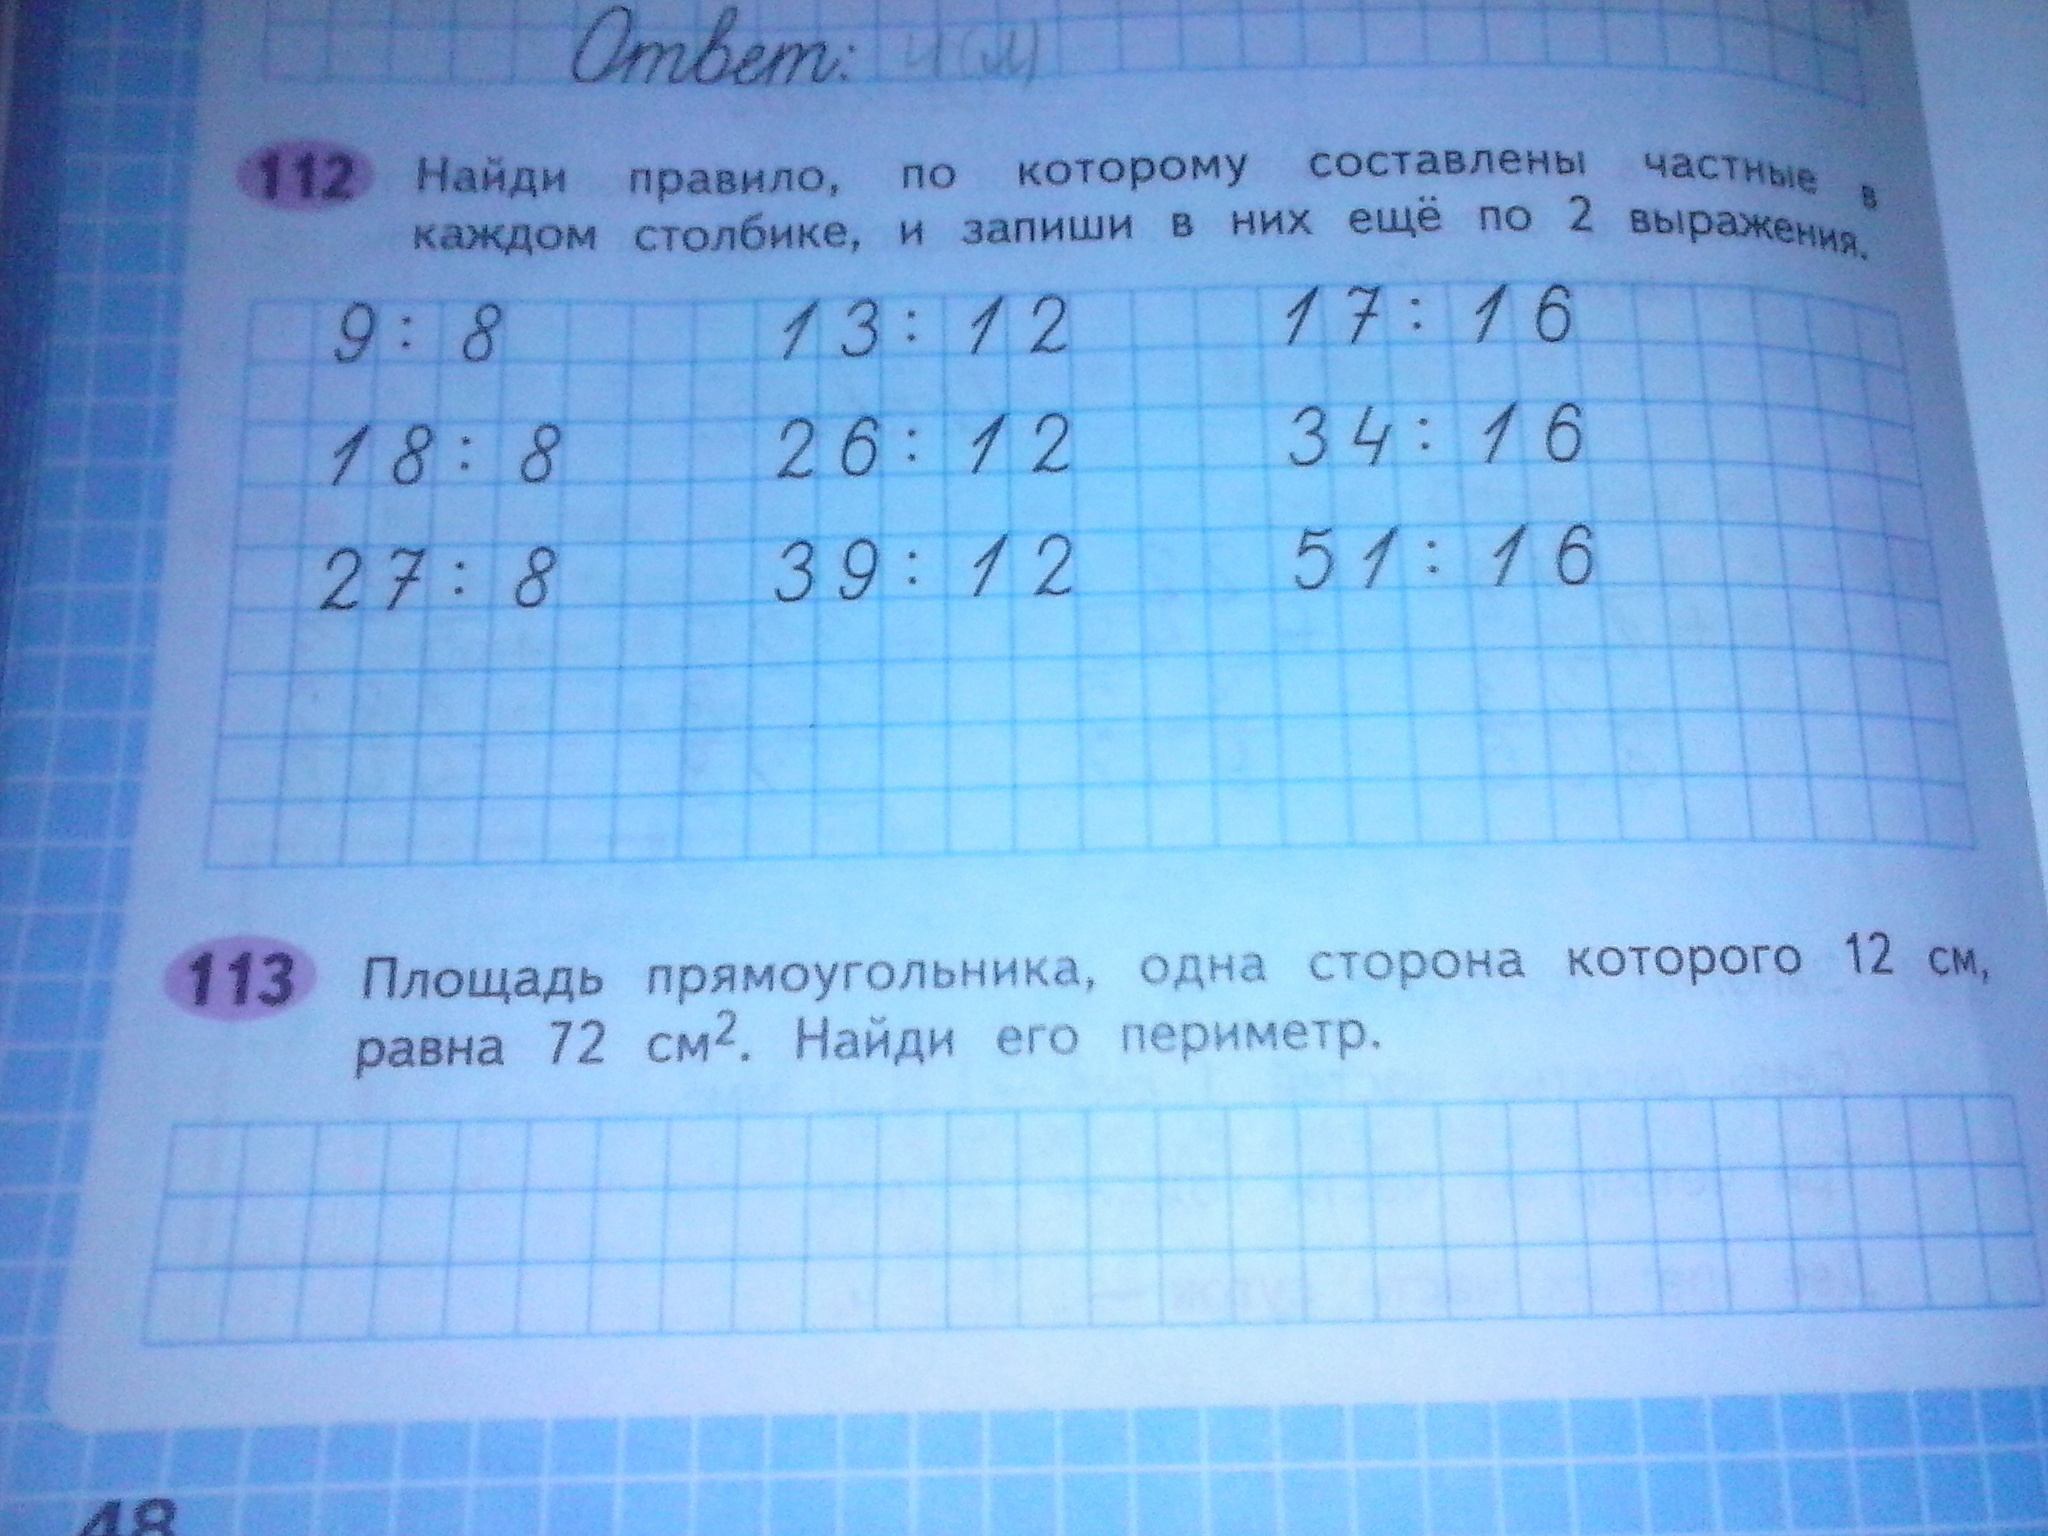 Ответ: 4 (м)
112 Найди правило, по которому составлены частные в
каждом столбике, и запиши в них ещё по 2 выражения.
9 : 8 13 : 12 17 : 16
18 : 8 26 : 12 34 : 16
27 : 8 39 : 12 51 : 16
113 Площадь прямоугольника, одна сторона которого 12 см,
равна 72 см². Найди его периметр.
48